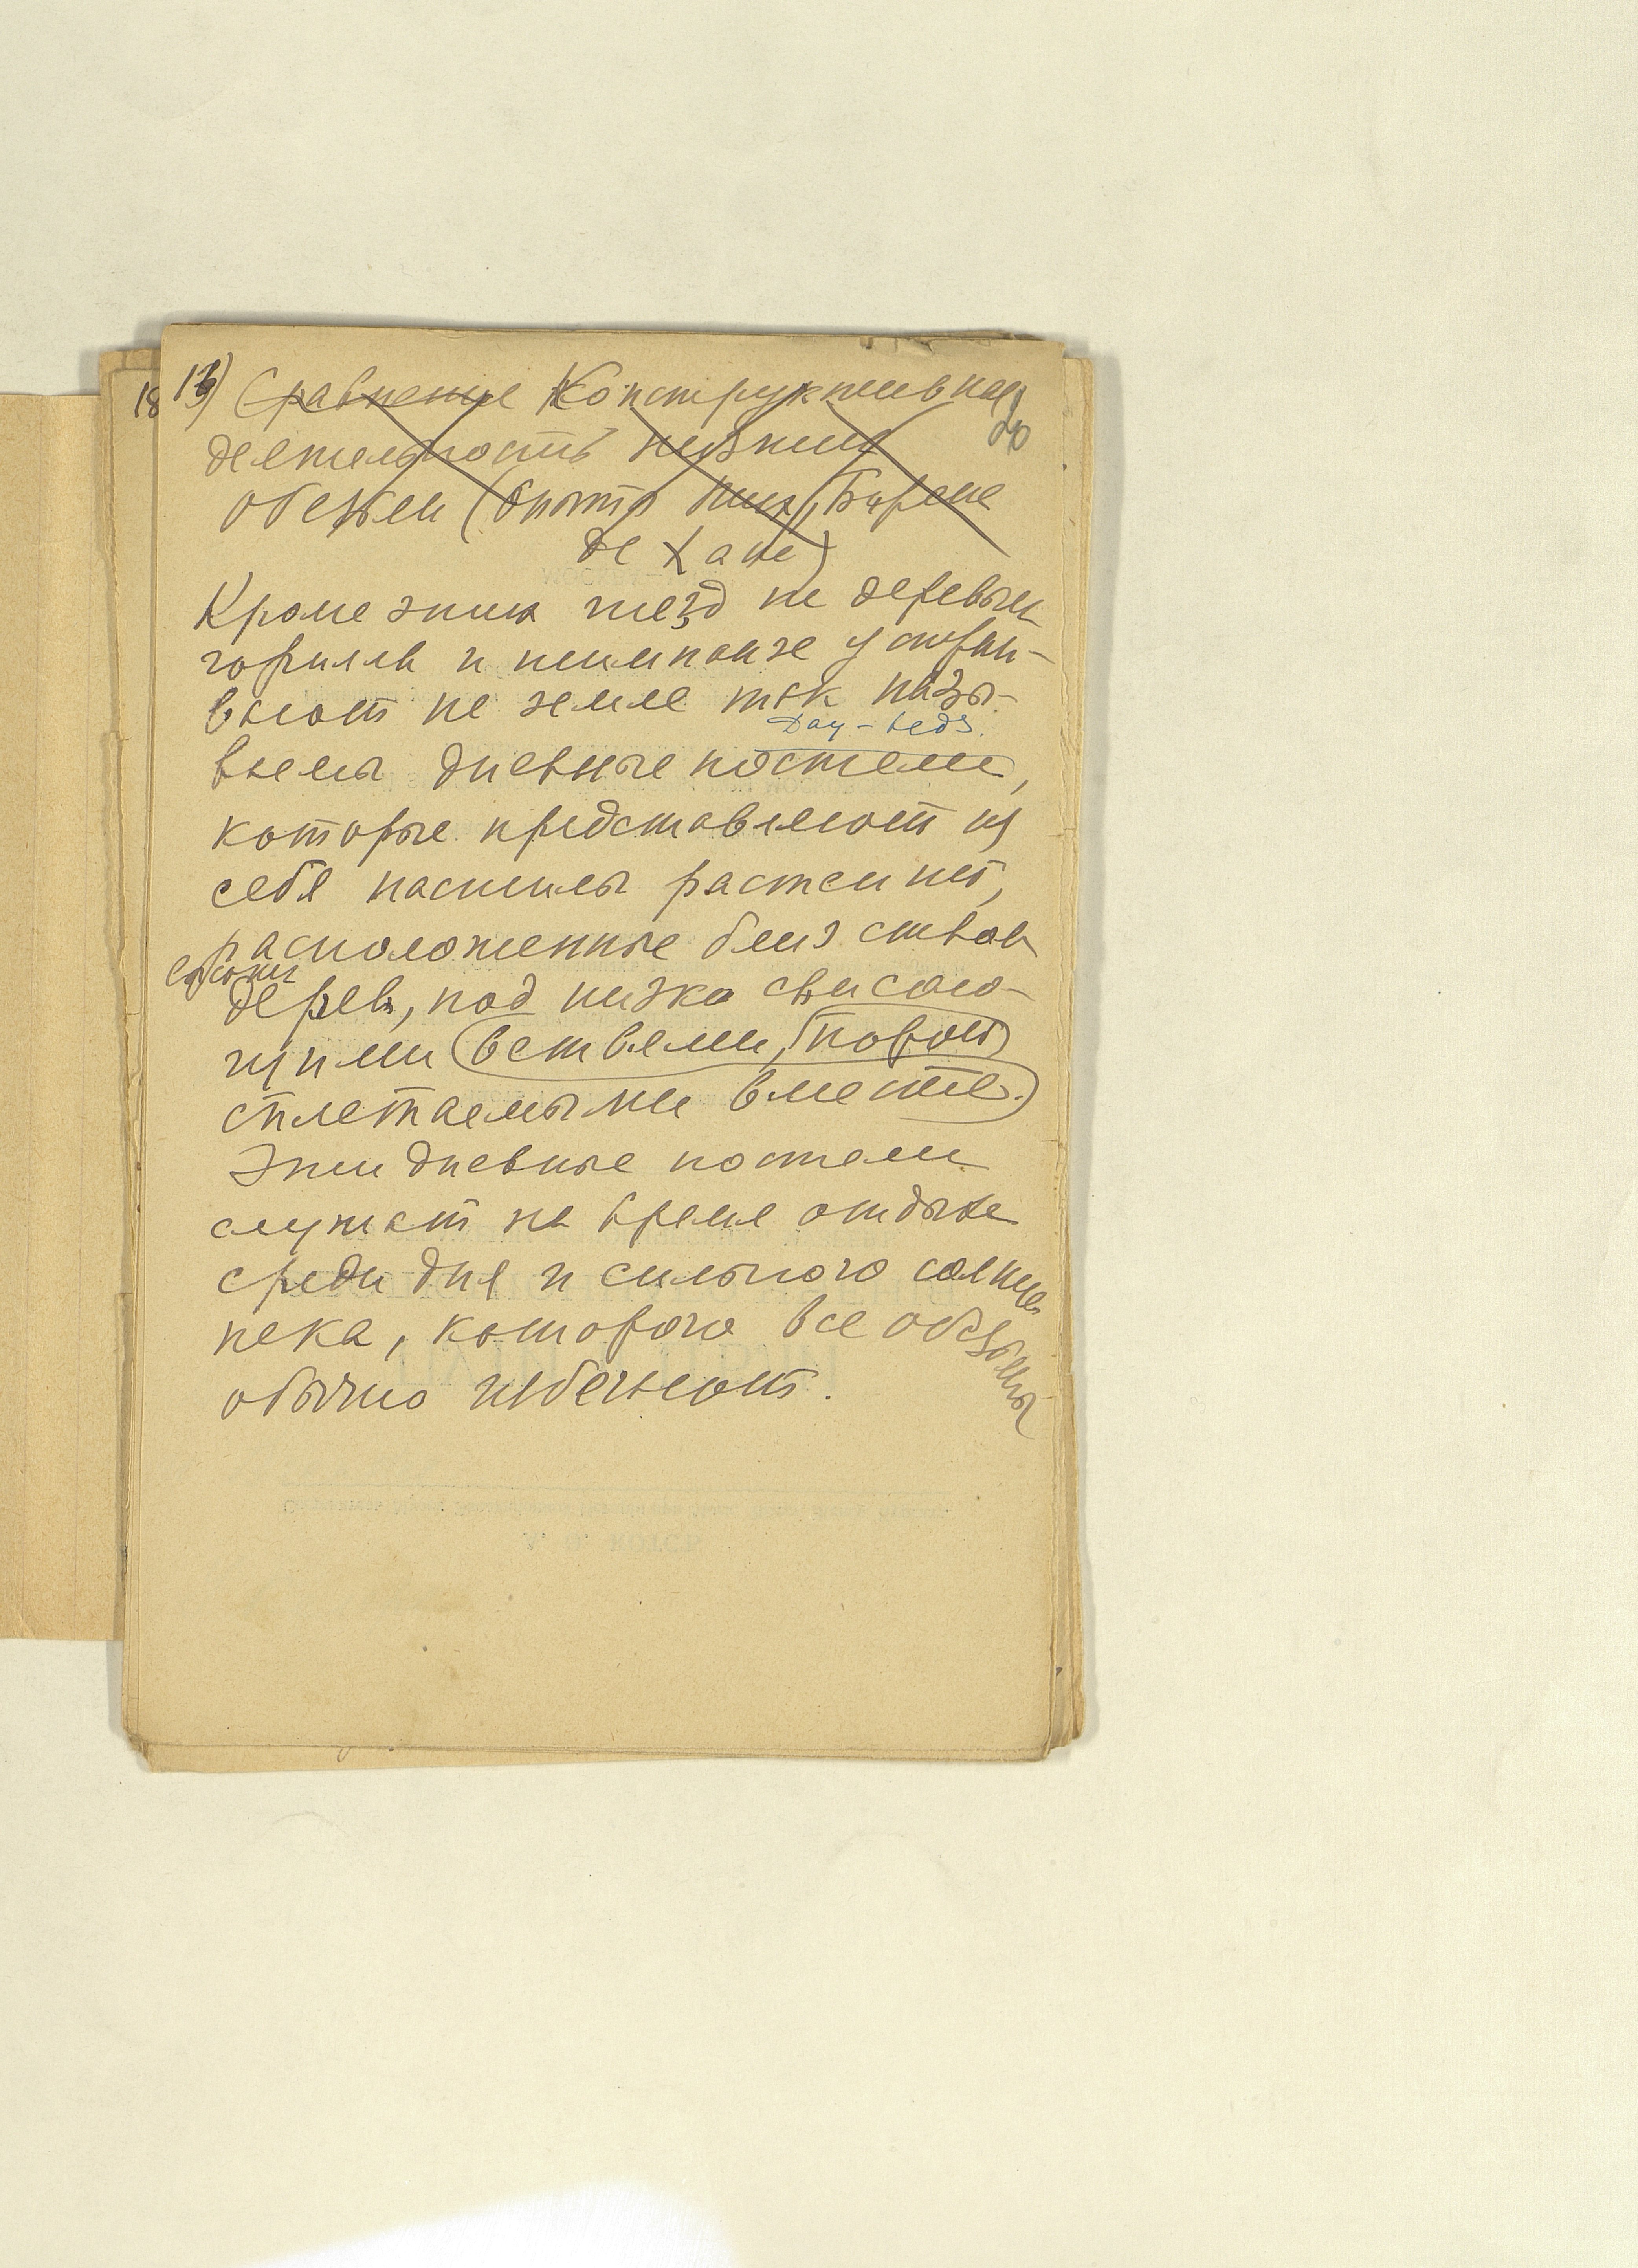 18 13) Сравнение Конструктивная
20
деятельность низших
обезьян (опыты
де Хане)
Кроме этих гнезд на деревьях
горилла и шимпанзе устраи-
вают на земле так назы-
Day-beds.
ваемы дневные постели,
которые представляют из
себя настилы растений,
расположенные близ ствола
дерева, под низко свисаю-
щими ветвями, порой
сплетаемыми вместе.
Эти дневные постели
служат на время отдыха
среди дня и сильного солнце
пека, которого все обезьяны
обычно избегают.